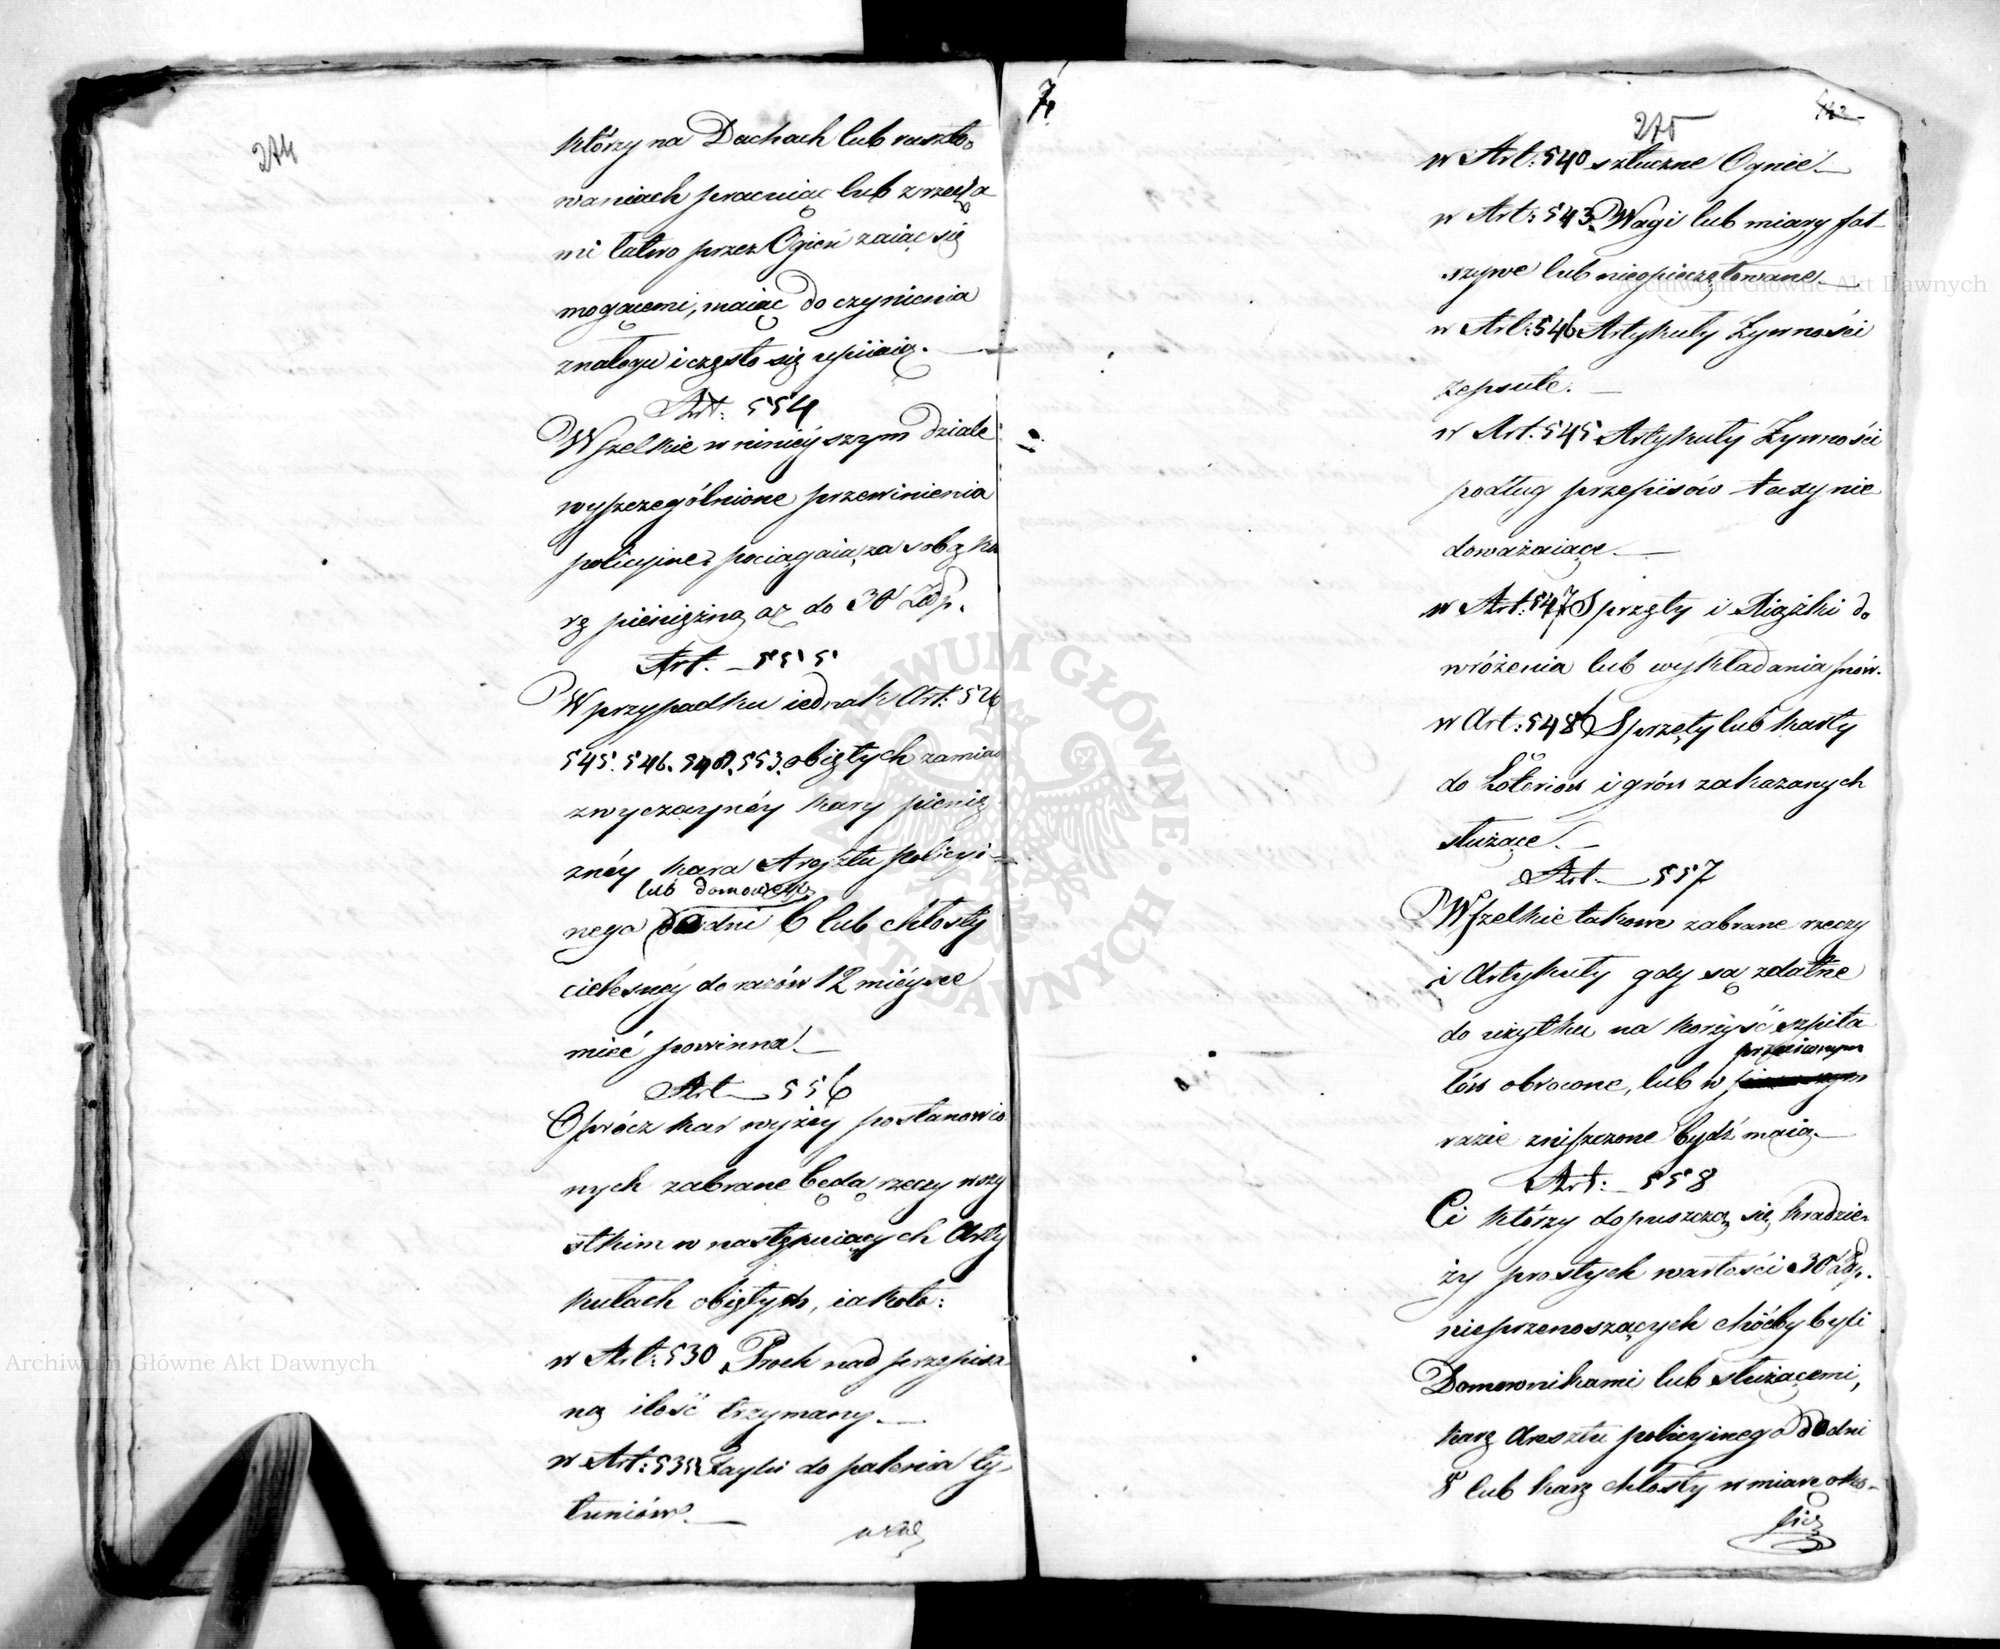 274
którzy na Dachach lub ruszto-
waniach pracuiąc lub z rzecza
mi łatwo przez Ogień zaiąc się
mogącemi, maiąc do czynienia
z nałogu i często się upiiaią. —
Art: 554
Wszelkie w ninieyszym Dziale
wyszczególnione przewinienia
policyine pociągaią za sobą ka
rę pieniężną aż do 30 Złp.
Art. — 555
W przypadku iednak Art: 526
545. 546. 548. 553. obiętych zamiast
zwyczayney kary pienię
żney kara Aresztu policyi-
lub domowego
nego do dni 6 lub chłosty
cielesney do razów 12 mieysce
mieć powinna. —
Art — 556
Oprócz kar wyżey postanowio
nych zabrane będą rzeczy wszy
stkim w następuiących Arty
kułach obiętych, iakoto:
w Art: 530 Proch nad przepisa
ną ilość trzymany. —
w Art: 535 Fayki do palenia ty-
tuniów. —
7.
275
w Art: 540 sztuczne Ognie. —
w Art: 543. Wagi lub miary fał-
szywe lub nieopieczętowane. —
w Art: 546 Artykuły Żywności
zepsute. —
w Art. 545 Artykuły Żywności
podług przepisów taxy nie
doważaiące. —
w Art: 547 Sprzęty i Xiążki do
wróżenia lub wykładania snów.
w Art: 548 Sprzęty lub karty
do Loteriow i grów zakazanych
służące. —
Art. — 557
Wszelkie takowe zabrane rzeczy
i Artykuły gdy są zdatne
do użytku na korzyść szpita
przeciwnym
lów obrocone, lub w
razie zniszczone bydź maią. —
Art: — 558
Ci którzy dopuszczą się kradzie-
ży prostych wartości 30 Złp.
nieprzenoszących choćby byli
Domownikami lub służącemi,
karę Aresztu policyinego do dni
8 lub karę chłosty w miarę oko-
licz
Archiwum Główne Akt Dawnych
Archiwum Główne Akt Dawnych
ARCHIWUM GŁÓWNE AKT DAWNYCH